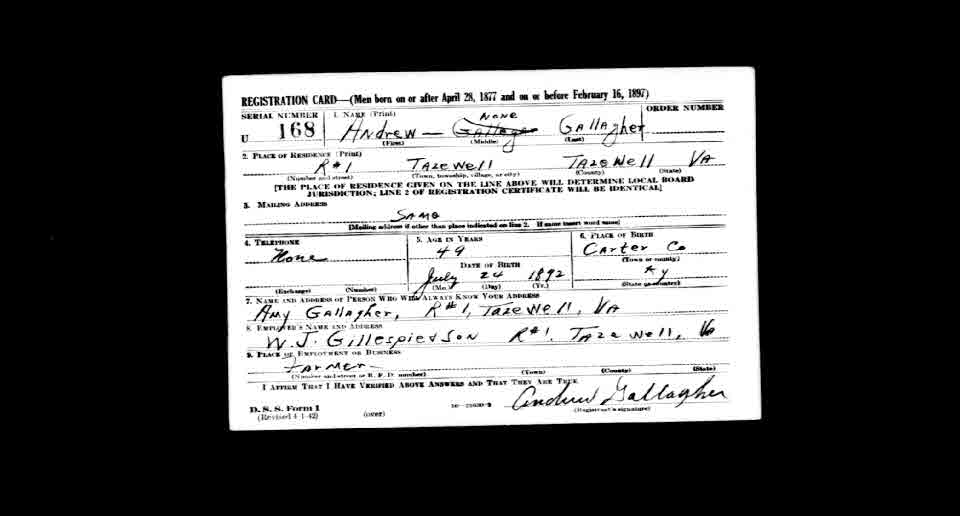 REGISTRATION CARD—(Men born on or after April 28, 1877 and on or before February 16, 1897)
SERIAL NUMBER 1. NAME (Print) ORDER NUMBER
U 168 Andrew — Gallagher None Gallagher
(First) (Middle) (Last)
2. PLACE OF RESIDENCE (Print)
R#1 Tazewell Tazewell Va
(Number and street) (Town, township, village, or city) (County) (State)
[THE PLACE OF RESIDENCE GIVEN ON THE LINE ABOVE WILL DETERMINE LOCAL BOARD
JURISDICTION; LINE 2 OF REGISTRATION CERTIFICATE WILL BE IDENTICAL]
3. MAILING ADDRESS
Same
[Mailing address if other than place indicated on line 2. If same insert word same]
4. TELEPHONE 5. AGE IN YEARS 6. PLACE OF BIRTH
None 49 Carter Co
DATE OF BIRTH (Town or county)
July 24 1892 Ky
(Exchange) (Number) (Mo.) (Day) (Yr.) (State or country)
7. NAME AND ADDRESS OF PERSON WHO WILL ALWAYS KNOW YOUR ADDRESS
Amy Gallagher, R#1, Tazewell, Va
8. EMPLOYER'S NAME AND ADDRESS
W. J. Gillespie & Son R#1. Tazewell, Va
9. PLACE OF EMPLOYMENT OR BUSINESS
Farmer
(Number and street or R. F. D. number) (Town) (County) (State)
I AFFIRM THAT I HAVE VERIFIED ABOVE ANSWERS AND THAT THEY ARE TRUE
Andrew Gallagher
D. S. S. Form 1
(Revised 4-1-42) (over) (Registrant's signature)